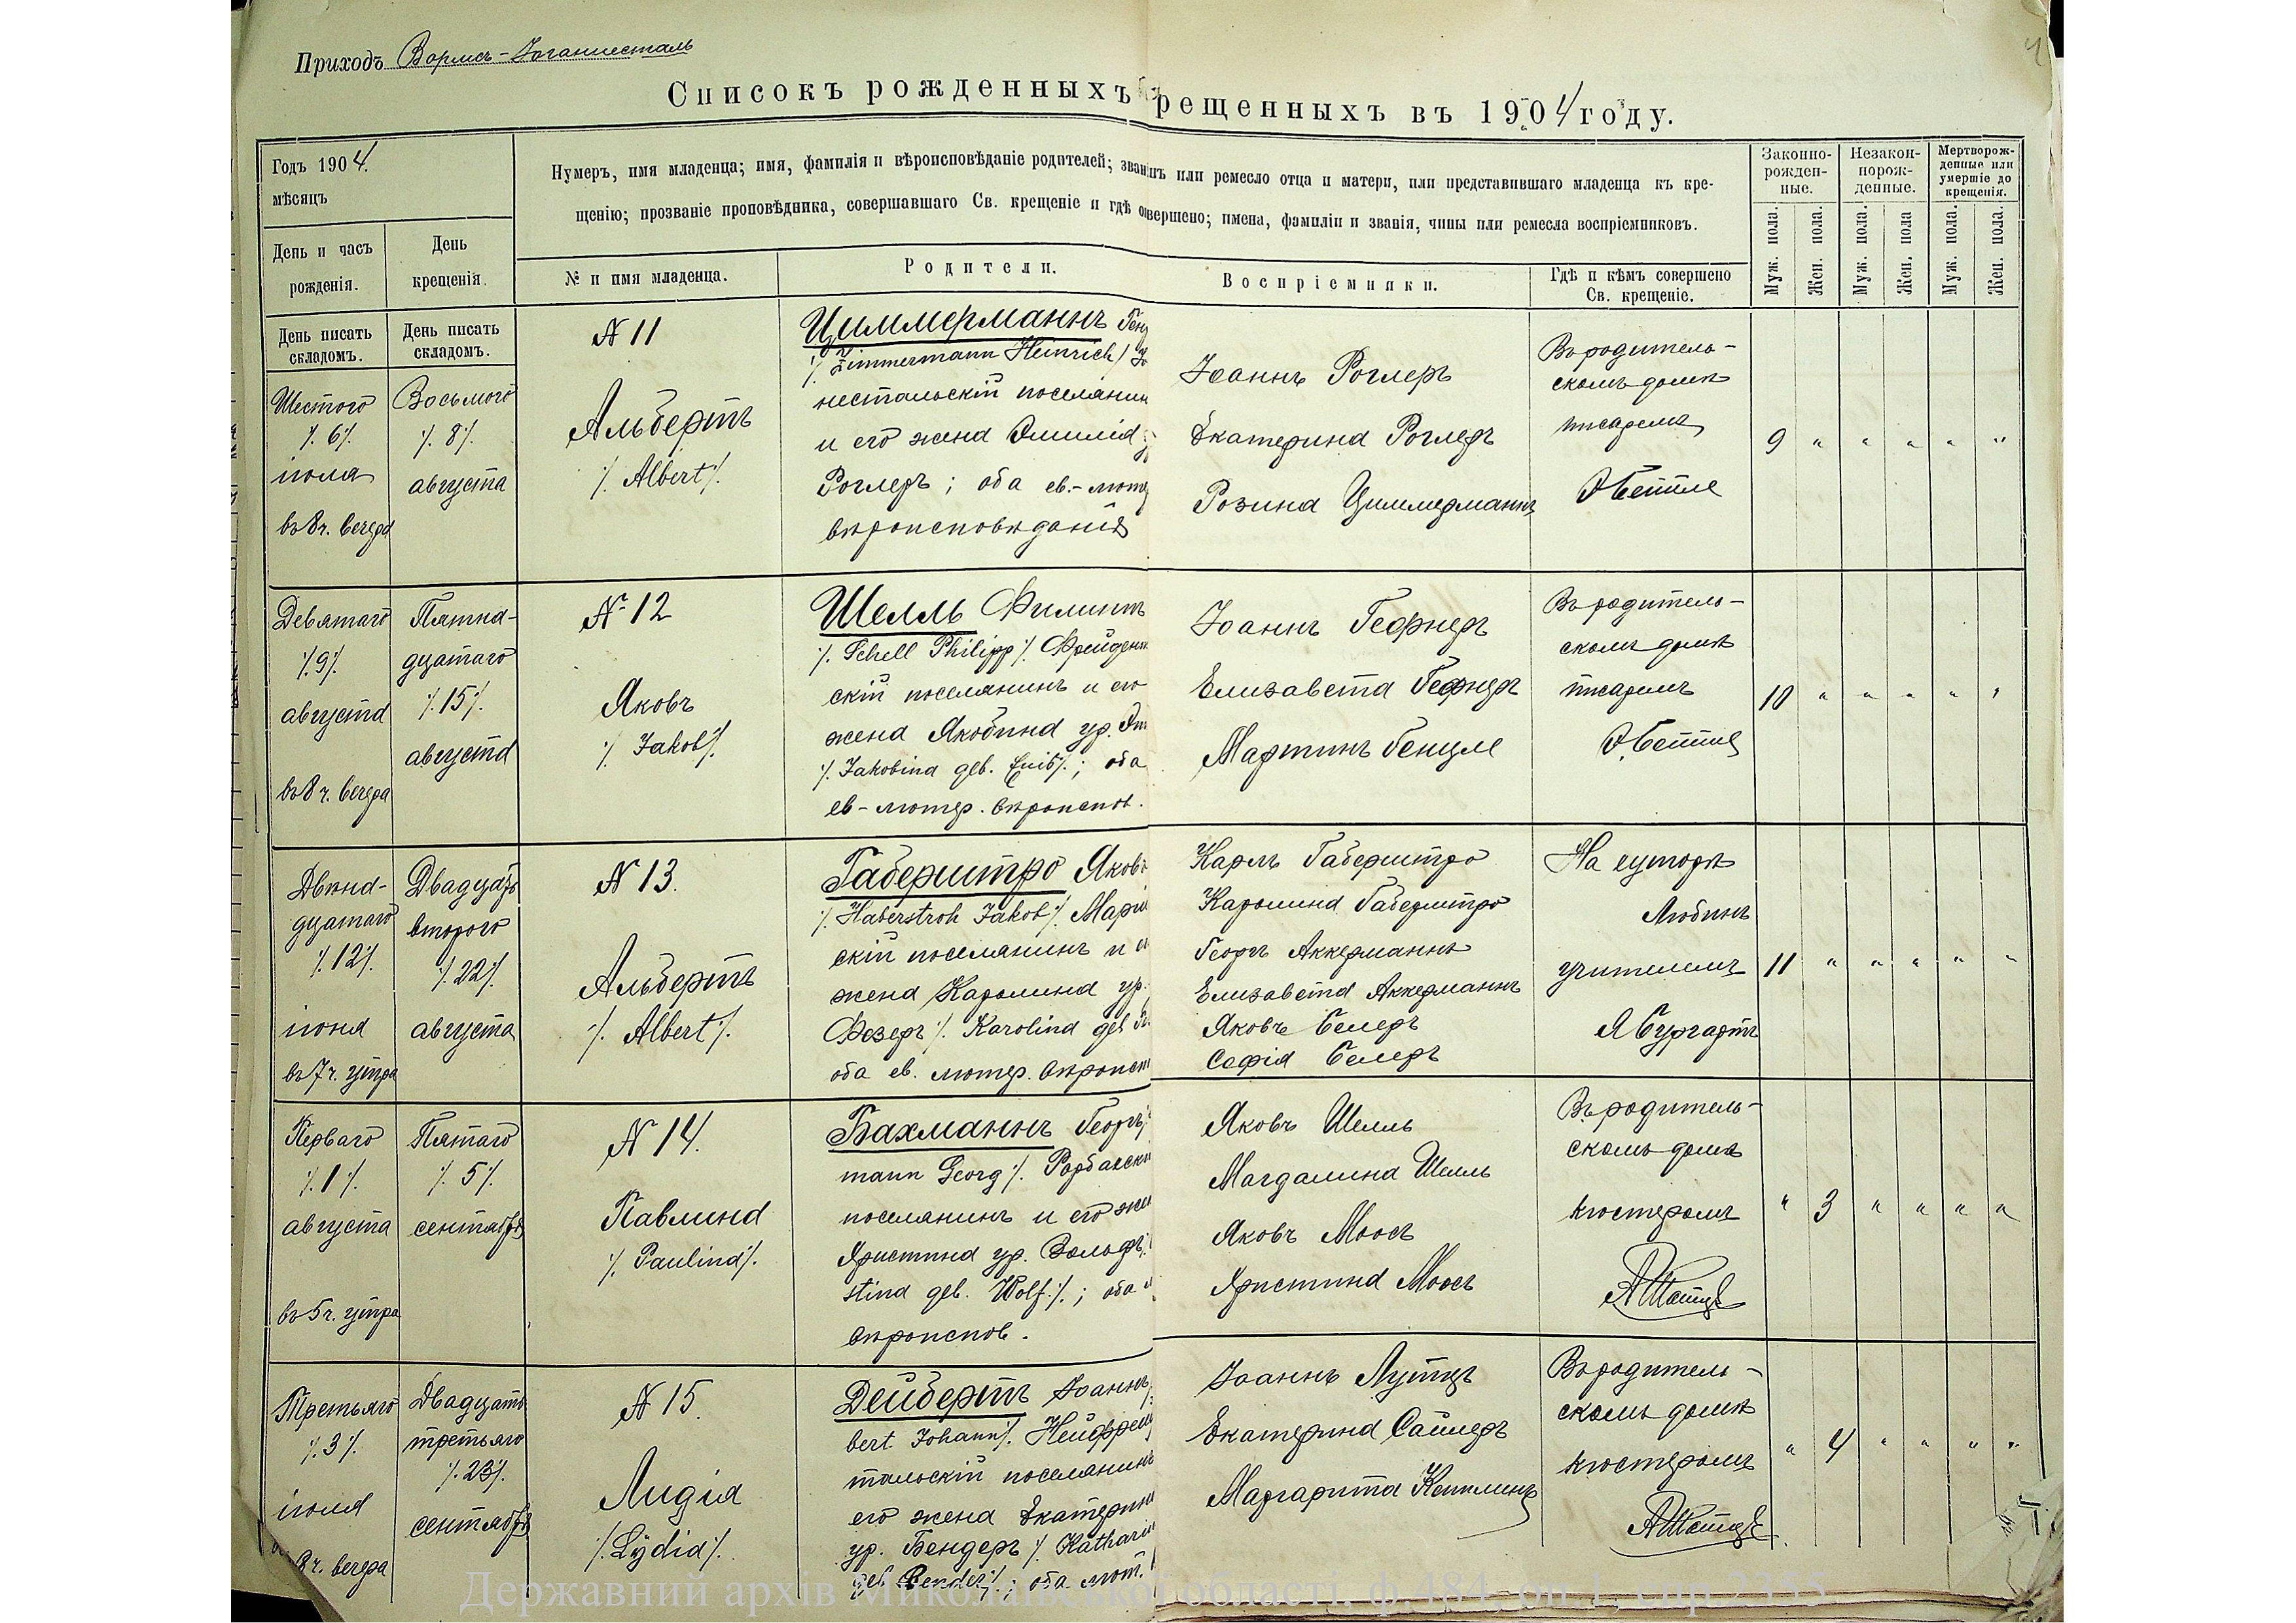 Приходъ Вормсъ-Іоганнесталь
Списокъ рожденныхъ рещенныхъ въ 1904 году.
Годъ 1904.
мѣсяцъ
День и часъ
рожденія.
День
крещенія.
Нумеръ, имя младенца; имя, фамилія и вѣроисповѣданіе родителей; или ремесло отца и матери, или представившаго младенца къ кре-
щенію; прозваніе проповѣдника, совершавшаго Св. крещеніе и гдѣ совершено; имена, фамиліи и званія, чины или ремесла воспріемниковъ.
№ и имя младенца.
Родители.
Воспріемники.
Гдѣ и кѣмъ совершено
Св. крещеніе.
Законно-
рожден-
ные.
Незакон-
норож-
денные.
Мертворож-
денные или
умершіе до
крещенія.
Муж. пола.
Жен. пола.
Муж. пола.
Жен. пола
Муж. пола.
Жен. пола.
День писать
складомъ.
День писать
складомъ.
Шестого
/.6/.
іюля
въ 8 ч. вечера
Восьмого
/.8/.
августа
№ 11
Альбертъ
/. Albert /.
Циммерманнъ Ген
/. Zimmermann Heinrich / Іо
нестальскій поселянин
и его жена Эмилія
Роглеръ; оба ев.-люте
вѣроисповѣданія
Іоаннъ Роглеръ
Екатерина Роглеръ
Розина Циммерманнъ
Въ родитель-
скомъ домѣ
писаремъ
9 " " " " "
Девятаго
/.9/.
августа
въ 8 ч. вечера
Пятна-
дцатаго
/.15/.
августа
№ 12
Яковъ
/. Jakob /.
Шелль Филиппъ
/. Schell Philipp /. Фрейден
скій поселянинъ и его
жена Якобина ур.
/. Jakobina geb. ; оба
ев-лютер. вѣроиспов.
Іоаннъ Гефнеръ
Елизавета Гефнеръ
Мартинъ Генцле
Въ родитель-
скомъ домѣ
писаремъ
10 " " " " "
Двѣна-
дцатаго
/.12/.
іюня
въ 7 ч. утра
Двадцать
второго
/.22/.
августа
№ 13.
Альбертъ
/. Albert /.
Габерштро Яковъ
/. Haberstroh Jakob /. Марі
скій поселянинъ и е
жена Каролина ур.
Фезеръ /. Karolina geb
оба ев. лютер. вѣроиспов
Карлъ Габерштро
Каролина Габерштро
Георгъ Аккерманнъ
Елизавета Аккерманнъ
Яковъ Селеръ
Софія Селеръ
На хуторѣ
Любинъ
учителемъ
Я Бургартъ
11 " " " " "
Перваго
/.1/.
августа
въ 5 ч. утра
Пятаго
/.5/.
сентября
№ 14.
Павлина
/. Paulina /.
Бахманнъ Георгъ
mann Georg /. Рорбахски
поселянинъ и его жен
Христина ур. Вольфъ
stina geb. Wolf. /.; оба
вѣроиспов.
Яковъ Шелль
Магдалина Шелль
Яковъ Моосъ
Христина Моосъ
Въ родитель-
скомъ домѣ
кюстеромъ
" 3 " " " "
Третьяго
/.3/.
іюля
8 ч. вечера
Двадцать
третьяго
/.23/.
сентября
№ 15.
Лидія
/. Lydia /.
Дейбертъ Іоаннъ
bert Johann /. Нейфрей
тальскій поселянинъ
его жена Екатерин
ур. Бендеръ /. Kathari
geb Bender /.; оба лют.
Іоаннъ Лутцъ
Екатерина Сайлеръ
Маргарита Кеттлингъ
Въ родитель-
скомъ домѣ
кюстеромъ
" 4 " " " "
Державний архів Миколаївської області, ф. 484, оп. 1, спр. 2335